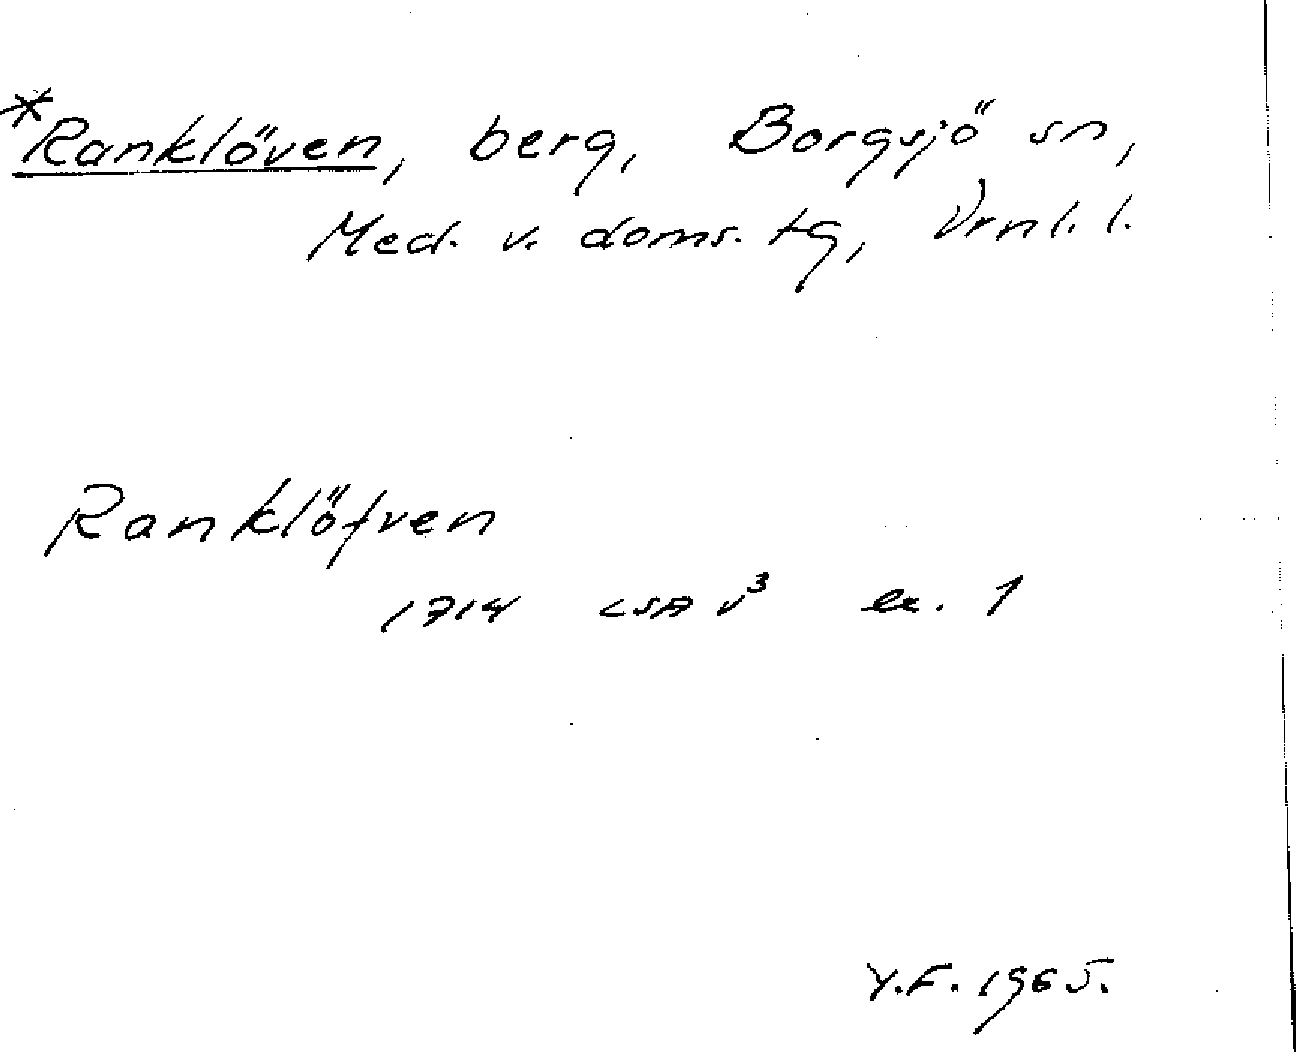 *Ranklöven, berg, Borgsjö sn,
Med. v. doms. tg, Vrnl. l.
Ranklöfven
1714 LSA V³ ex. 1
Y.F. 1965.